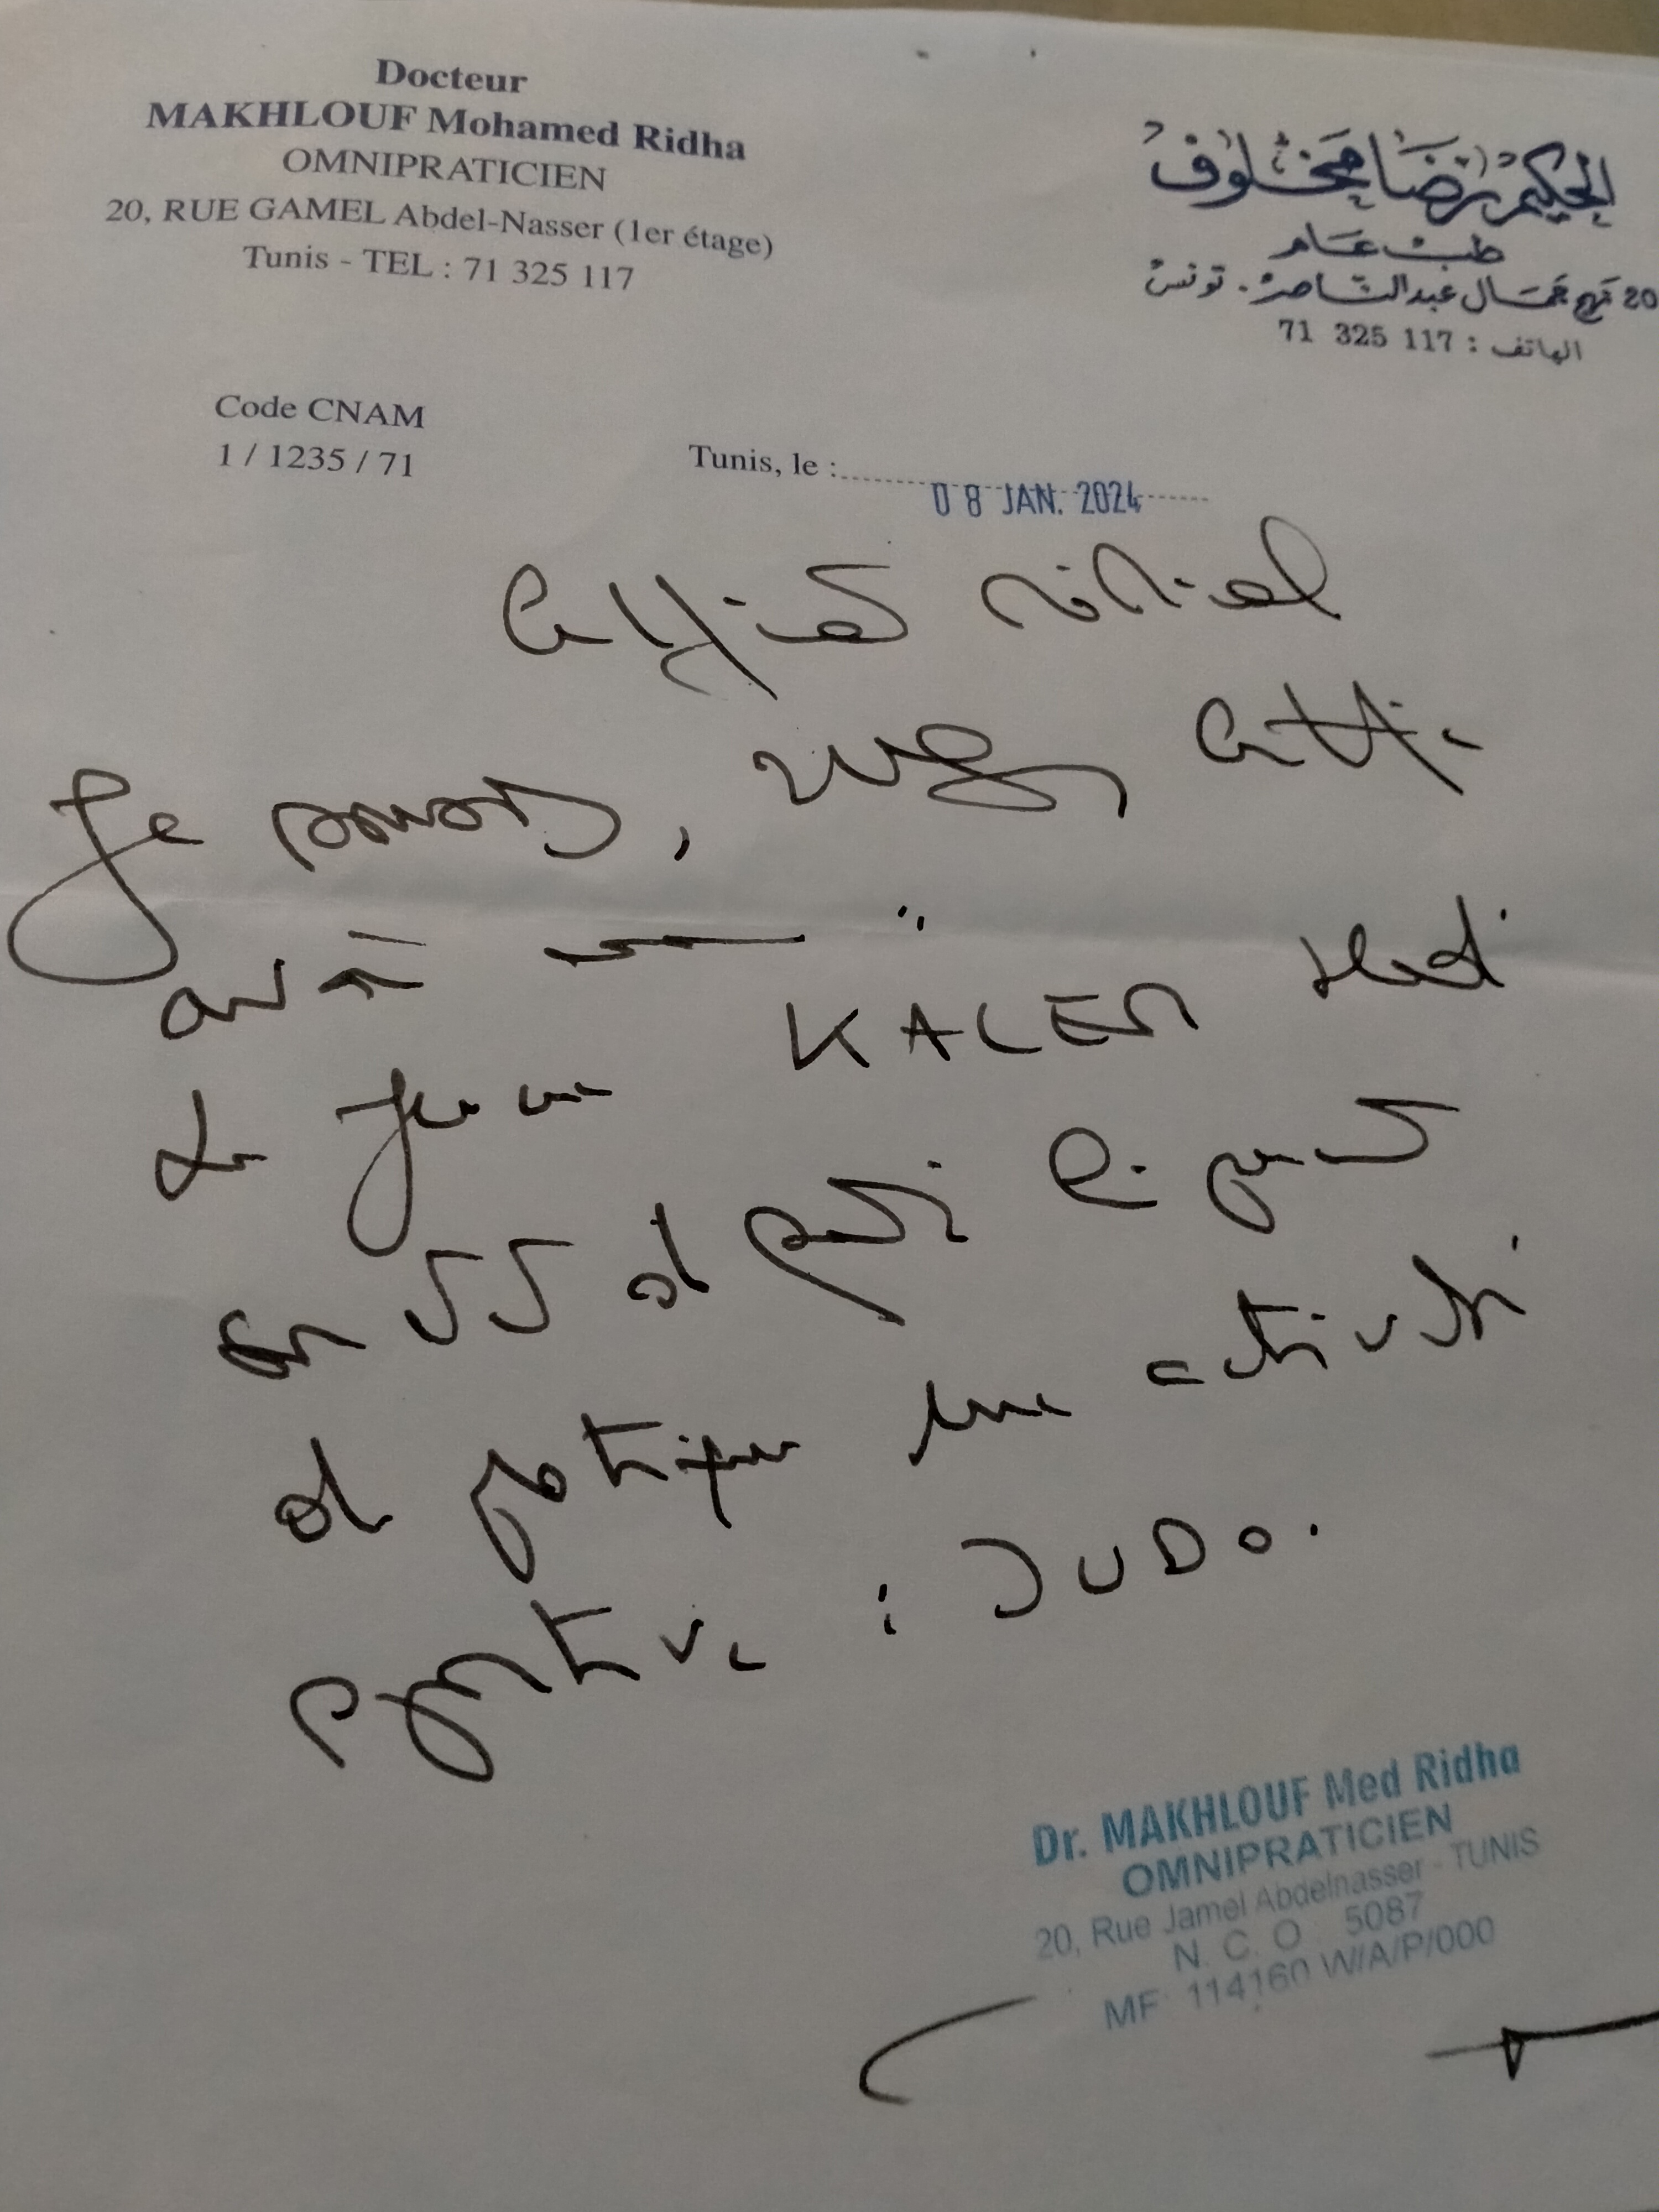 Docteur
MAKHLOUF Mohamed Ridha
OMNIPRATICIEN
20, RUE GAMEL Abdel-Nasser (1er étage)
Tunis - TEL : 71 325 117
الحكيم رضا مخلوف
طب عام
20 نهج جمال عبد الناصر - تونس
الهاتف : 117 325 71
Code CNAM
1 / 1235 / 71
Tunis, le : 08 JAN. 2024
Certificat médical
Je soussigné, certifie
avoir examiné
le jeune KACEM Hedi
en et qui
et pratiquer une activité
sportive : JUDO.
Dr. MAKHLOUF Med Ridha
OMNIPRATICIEN
20, Rue Jamel Abdelnasser - TUNIS
N. C. O 5087
MF: 114160 W/A/P/000